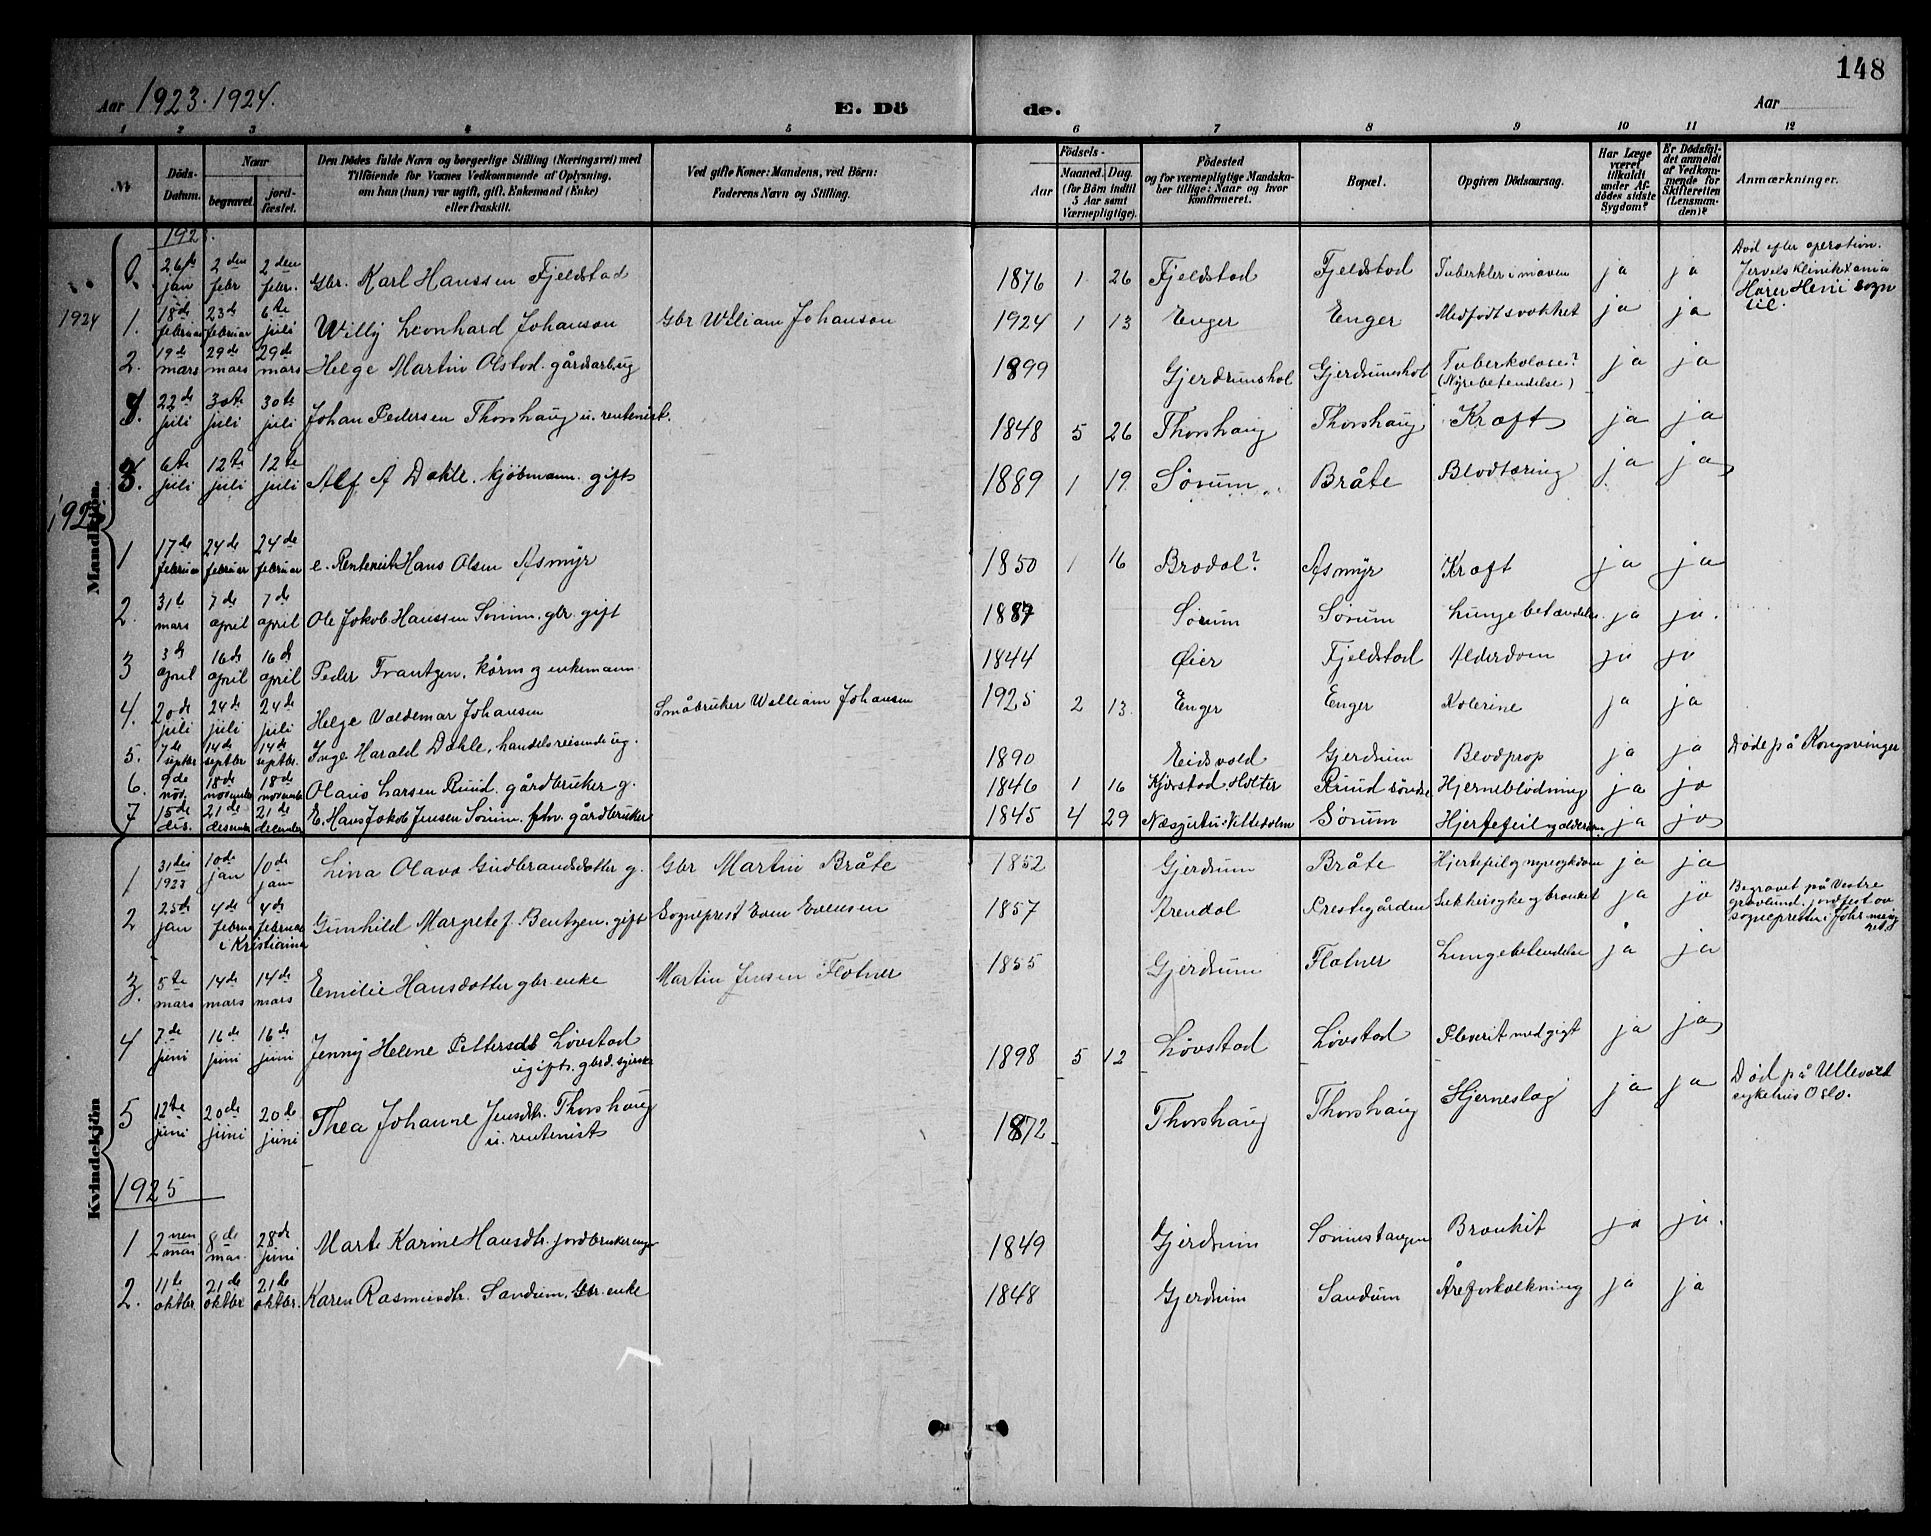 148
Aar 1923.1924.
E. Dö de.
Aar
1 2 3 4 5 6 7 8 9 10 11 12
Nr
Döds-Datum.
Naar
begravet.
jord-fæstet.
Den Dödes fulde Navn og borgerlige Stilling (Næringsvei) med
Tilföiende for Voxnes Vedkommende af Oplysning,
om han (hun) var ugift, gift, Enkemand (Enke)
eller fraskilt.
Ved gifte Koner: Mandens, ved Börn:
Faderens Navn og Stilling.
Födsels-
Aar
Maaned. Dag.
(for Börn indtil
5 Aar samt
Værnepligtige).
Födested
og for værnepligtige Mandska-
ber tillige: Naar og hvor
konfirmeret.
Bopæl.
Opgiven Dödsaarsag.
Har Læge
været
tilkaldt
under Af-
dödes sidste
Sygdom?
Er Dödsfal-
det anmeldt
af Vedkom-
mende for
Skifteretten
(Lensman-
den)?
Anmærkninger.
Mandkjön.
26de jan 2den febr 2den febr. Gbr. Karl Hanssen Fjeldstad 1876 1 26 Fjeldstad Fjeldstad Tuberkler i maven ja ja Död efter operation.
1924 1. 18de februar 23de februar 6te juli Willy Leonhard Johanson Gbr William Johanson 1924 1 13 Enger Enger Medfödt svakhet ja ja
2. 19de mars 29de mars 29de mars Helge Martin Olstad. gårdsarb. ug 1899 Gjerdrumshol Gjerdrumshol Tuberkolose? (Nyrebetendelse) ja ja
22de juli 30te juli 30te juli Johan Pedersen Thorshaug u. rentenist. 1848 5 26 Thorshaug Thorshaug Kræft ja ja
3. 6te juli 12te juli 12te juli Alf A Dahle. kjöbmann. gift 1889 1 19 Sörum Bråte Blodtæring ja ja
1 17de februar 24de februar 24de februar e. Rentenist Hans Olsen Asmyr 1850 1 16 Brodal? Asmyr Kræft ja ja
2. 31te mars 7de april 7de april Ole Jakob Hanssen Sörum. gbr. gift 1887 Sörum Sörum Lungebetændelse. ja ja.
3 3de april 16de april 16de april Peder Frantzen, kårm og enkemann 1844 Øier Fjeldstad Alderdom ja ja
4. 20de juli 24de juli 24de juli Helge Valdemar Johansen Småbruker William Johansen 1925 2 13. Enger Enger Kolerine ja ja
5. 7de septbr 14de septbr 14de septbr. Inge Harald Dahle, handelsreisende ug. 1890 Eidsvold Gjerdrum Blodprop ja ja Döde på Kongsvinger
6. 9de nov. 18de november 18de november Olaus Larsen Ruud. gårdbruker g. 1846 1 16 Kjörstad, Holter Ruud söndre Hjerneblödning ja ja
7 15de des. 21de desember 21de december E. Hans Jakob Jensen Sörum. fhv. gårdbruker 1845 4 29 Sörum ja ja
Kvindekjön
1 31te des 1923 10de jan 10de jan Lina Olava Gudbrandsdotter g. Gbr Martin Bråte 1852 Gjerdrum Bråte Hjertefeil og nyresykdom ja ja
2 25de jan 4de februar 4de februar i Kristiania Gunhild Margrete f. Bentzen. gift Sogneprest Even Evensen 1857 Arendal Prestegården Sukkersyke og bronkit ja ja Begravet på Vestre gravlund. jordfest av
3. 5te mars 14de mars 14de mars Emilie Hansdotter gbr. enke Martin Jensen Flatner 1855 Gjerdrum Flatner Lungebetendelse ja ja
4 7de juni 16de juni 16de juni Jenny Helene Pettersdt Lövstad 1898 5 12 Lövstad Lövstad Pleverit med gigt ja ja
5 12te juni 20de juni 20de juni Thea Johanne Jensdtr. Thorshaug u. rentenist 1872 Thorshaug Thorshaug Hjerneslag ja ja Död på Ullevoll sykehus Oslo.
1925
1 2nen mai. 8de mai. 28de juni Marte Karine Hansdtr. jordbruker 1849 Gjerdrum Sörumstangen Bronkit ja ja.
2. 11te oktbr. 21de oktbr 21de oktbr. Karen Rasmusdtr. Sandum. Gbr. enke 1848 Gjerdrum Sandum Åreforkalkning ja ja